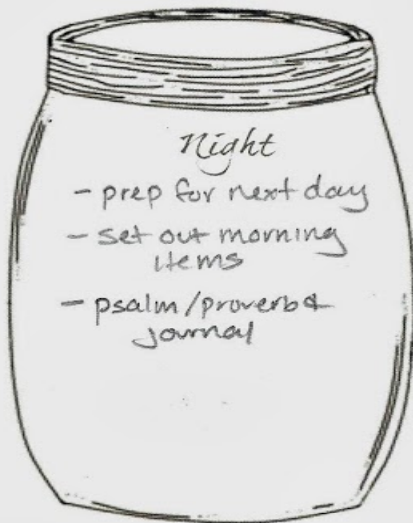 Night
- prep for next day
- set out morning
items
- psalm/proverb &
journal